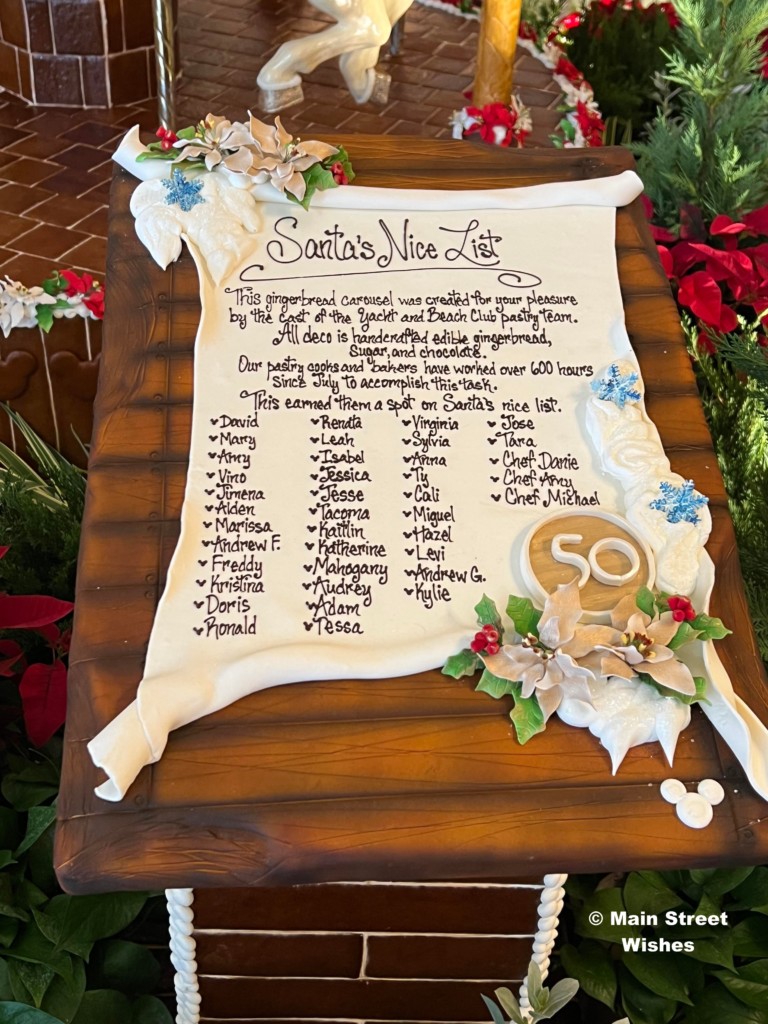 Santa's Nice List
This gingerbread carousel was created for your pleasure
by the cast of the Yacht and Beach Club pastry team.
All deco is handcrafted edible gingerbread,
Sugar, and chocolate.
Our pastry cooks and bakers have worked over 600 hours
since July to accomplish this task.
This earned them a spot on Santa's nice list.
David
Mary
Amy
Vino
Jimena
Alden
Marissa
Andrew F.
Freddy
Kristina
Doris
Ronald
Renata
Leah
Isabel
Jessica
Jesse
Tacoma
Kaitlin
Katherine
Mahogany
Audrey
Adam
Tessa
Virginia
Sylvia
Anna
Ty
Cali
Miguel
Hazel
Levi
Andrew G.
Kylie
Jose
Tara
Chef Danie
Chef Amy
Chef Michael
50
© Main Street
Wishes